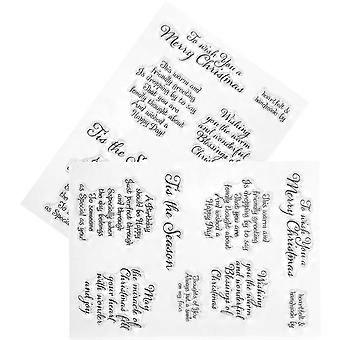 To wish You a
Merry Christmas
heartfelt &
handmade by
This warm and
friendly greeting
Is dropping by to say
That you are
fondly thought about
And wished a
Happy Day!
Wishing
you the warm
and wonderful
Blessings of
Christmas
Tis the Season
To wish You a
Merry Christmas
heartfelt &
handmade by
This warm and
friendly greeting
Is dropping by to say
That you are
fondly thought about
And wished a
Happy Day!
Wishing
you the warm
and wonderful
Blessings of
Christmas
Tis the Season
Thoughts of You
Always Put a Smile
on my Face
A Birthday
should be Happy
Just perfect through
and through
Especially when
the day belongs
To someone
as Special as you!
May
the miracle of
Christmas fill
your heart
with wonder
and joy